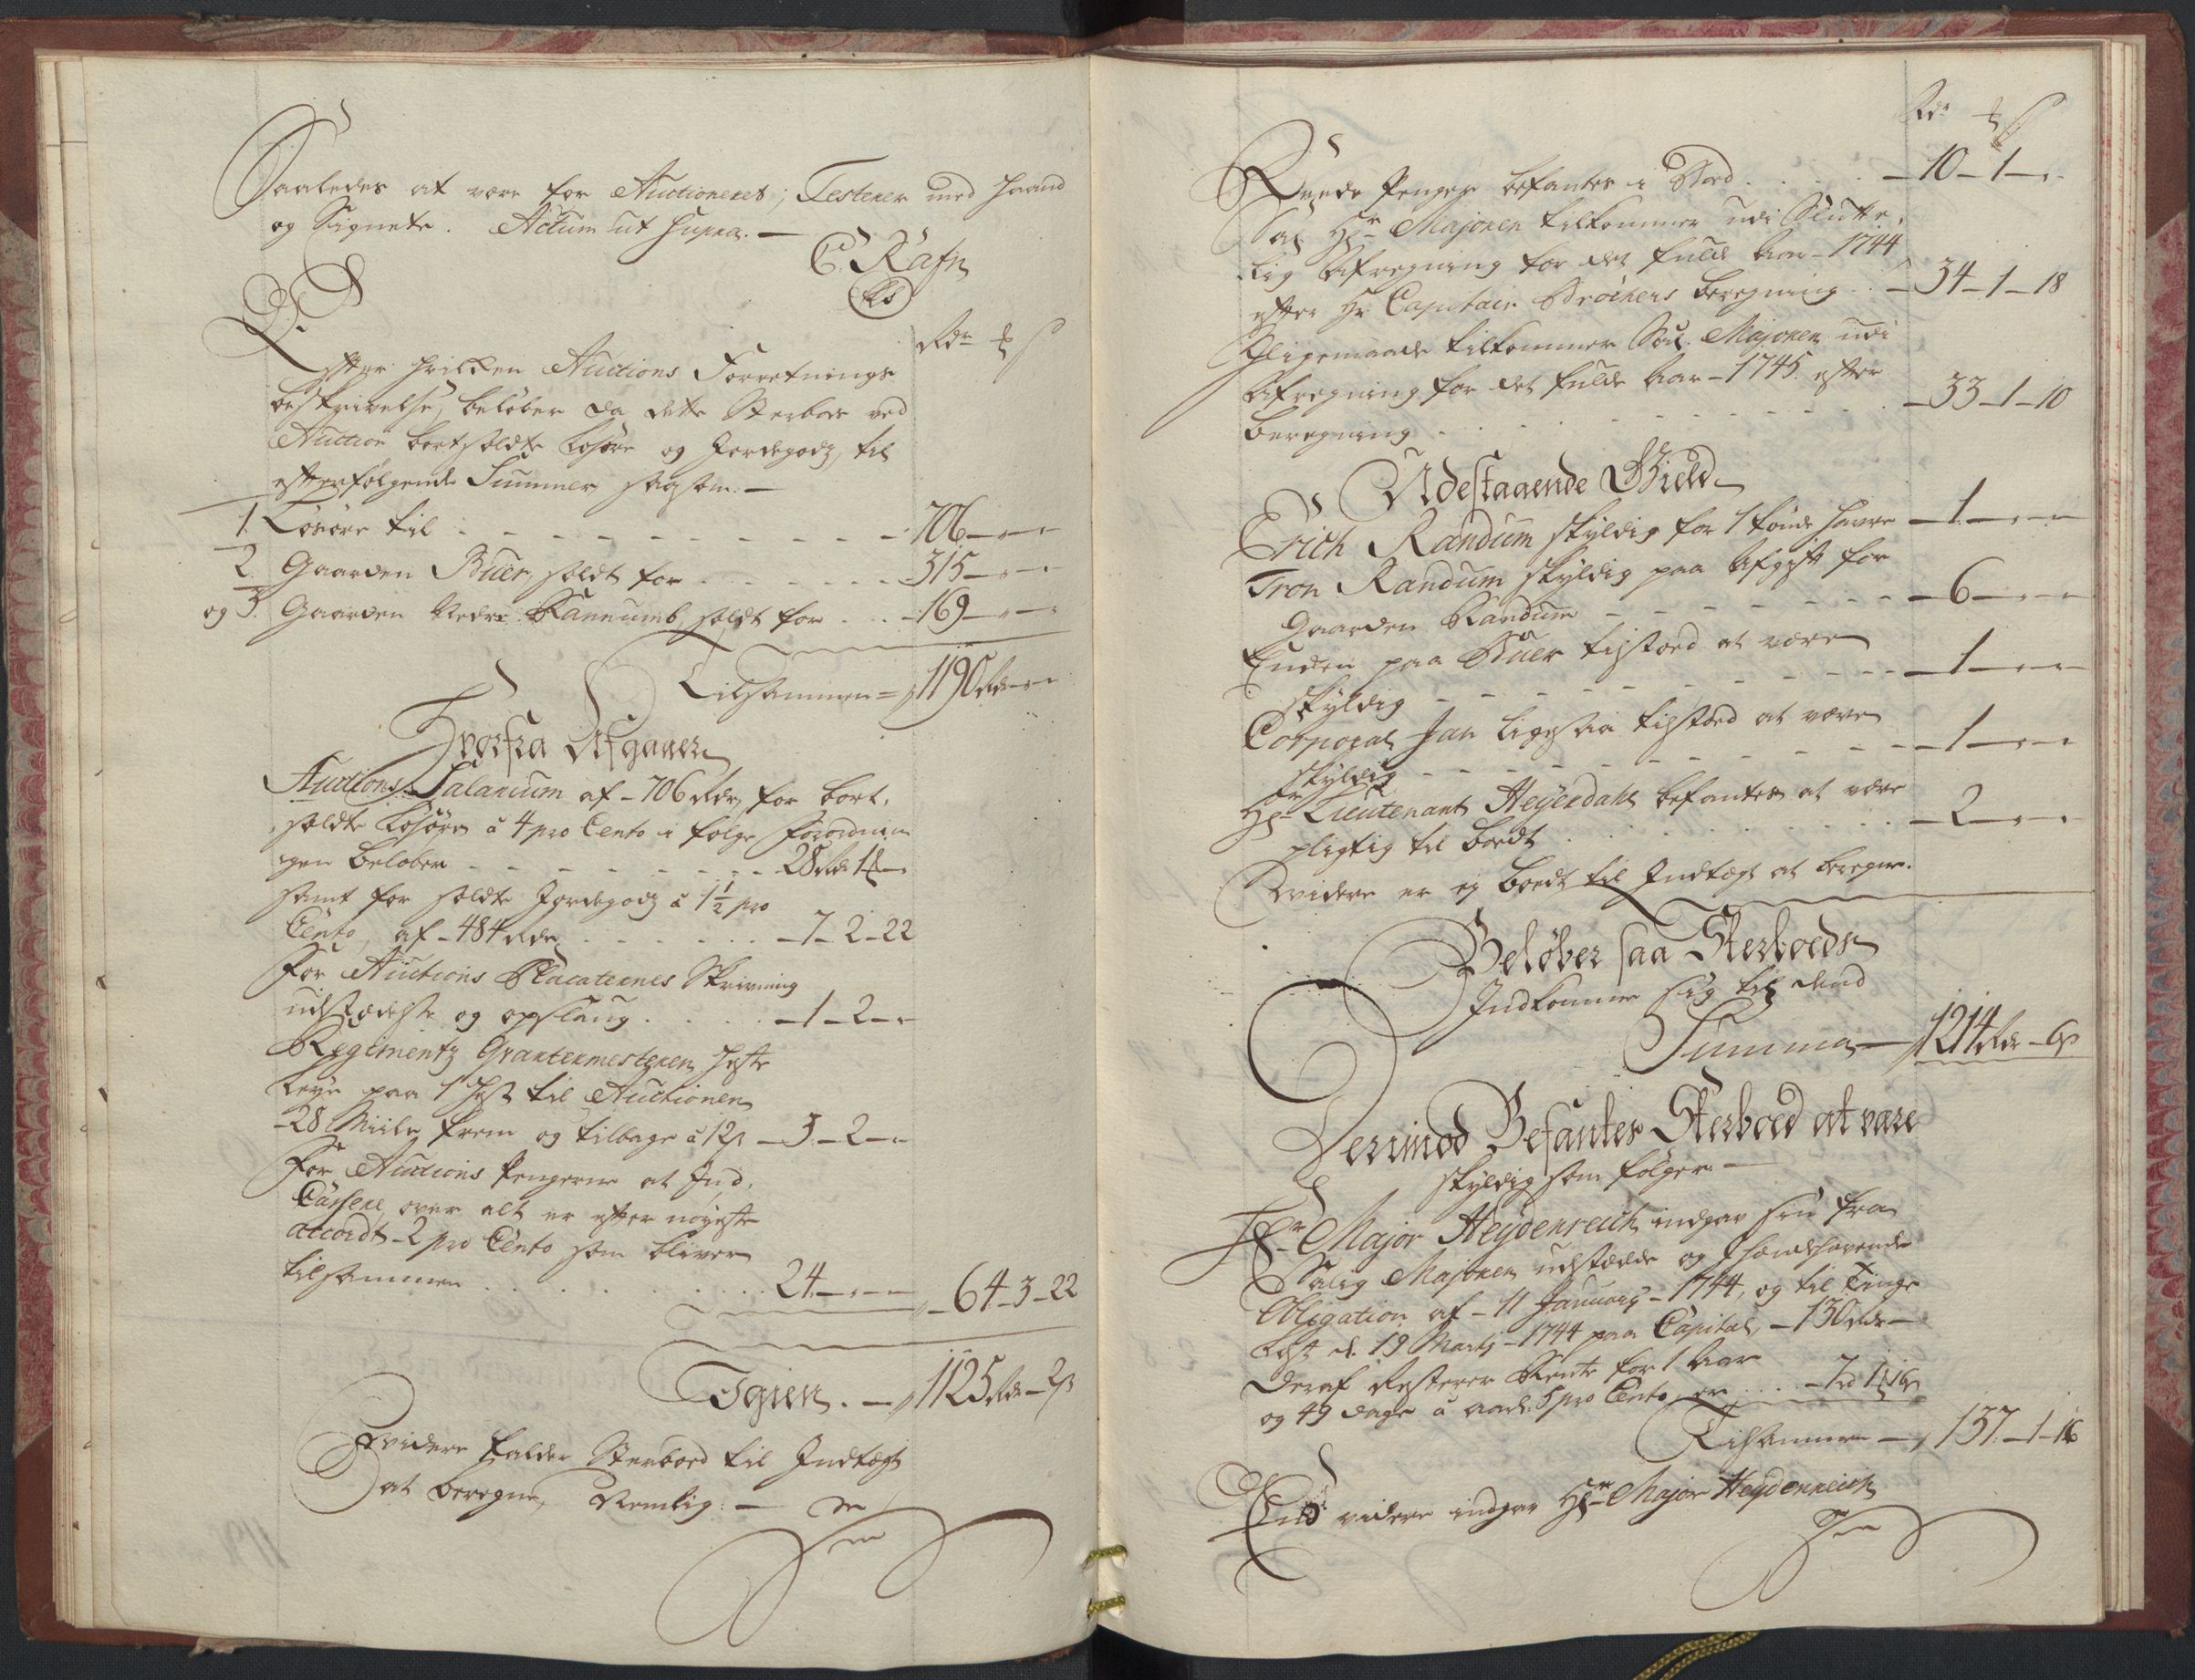 Saaledes at være for Auctioneret; Testerer med Haand
og Signete. Actum ut Supra. —
C. Rafn
LS
Rdr ₰ ß
Efter hvilken Auctions Forretnings
beskrivelse, beløber da dette Sterboes ved
Auction bortsoldte Løsøre og Jordegodz, til
efterfølgende Summer saasom: —
1. Løsøre til - - - - - - 706 — " — "
2. Gaarden Buer soldt for - - - - 315 — " — "
og 3. Gaarden Nedre Rannumb soldt for . . . 169 — " — "
Tilsammen = 1190 Rdr — " — "
Hvorfra Afgaaer
Auctions Salarium af - 706 Rdr, for bort-
soldte Løsøre á 4 pro Cento i følge Forordnin
gen beløber - - - - - 28 Rdr 1 ₰ —
samt for soldte Jordegodz á 1½ pro
Cento, af - 484 Rdr . . . . . . — 7 - 2 - 22
For Auctions Placaternes Skrivning
udstædelse og opslaug . . . . — 1 — 2 — "
Regimentz Qvarteermesteren Heste
leye paa 1 Hest til Auctionen
- 28 Miile frem og tilbage á 12 ß — 3 — 2 — "
For Auctions Pengerne at Ind-
Cassere, over alt er efter nøyeste
accordt - 2 pro Cento som bliver
tilsammen . . . . . . . . 24 — " — " — 64 - 3 - 22
Igien . — 1125 Rdr — 2 ß
Widere falder Sterboed til Indtægt
at beregne, Nemlig: —
Rdr ₰ ß
Rede Penger befantes i Boed . . . . — 10 — 1 — "
Sal. Hr Majoren tilkommer udi Slutte-
lig Afregning for det fulde Aar - 1744
efter Hr Capitain Bröchers beregning . . — 34 — 1 — 18
Ligemaade tilkommer Sal. Majoren udi
Afregning for det fulde Aar - 1745 efter
beregning - - - - - - - — 33 — 1 — 10
Udestaaende Gield
Erich Randum skyldig for 1 tønde Havre — 1 — " — "
Tron Randum skyldig paa Afgift for
Gaarden Randum - - - - - - — 6 — " — "
Enken paa Buer tilstoed at være
skyldig - - - - - - — 1 — " — "
Corporal Jan ligesaa tilstoed at være
skyldig - - - - - - — 1 — " — "
Hr Lieutenant Heyerdahl befantes at være
pligtig til Boedt . . . . . . — 2 — " — "
Widere er ey boedt til Indtægt at beregne.
Beløber saa Sterboeds
Indkomme sig til dend
Summa — 1214 Rdr — 6 ß
Derimod Befantes Sterboed at være
skyldig som følger: —
Hr Major Heydenreich indgav sin fra
Salig Majoren udstædde og i hændehavende
Obligation af - 11 January - 1744, og til Tinge
Læst d. 19 Marty - 1744 paa Capital, — 130 Rdr —
Deraf Resterer Rente for 1 Aar
og 49 dage á aarl. 5 pro Cento, er . . . — 7 rd 1 ₰ 16 ß
Tilsammen — 137 — 1 — 16
End videre indgav Hr Major Heydenreich